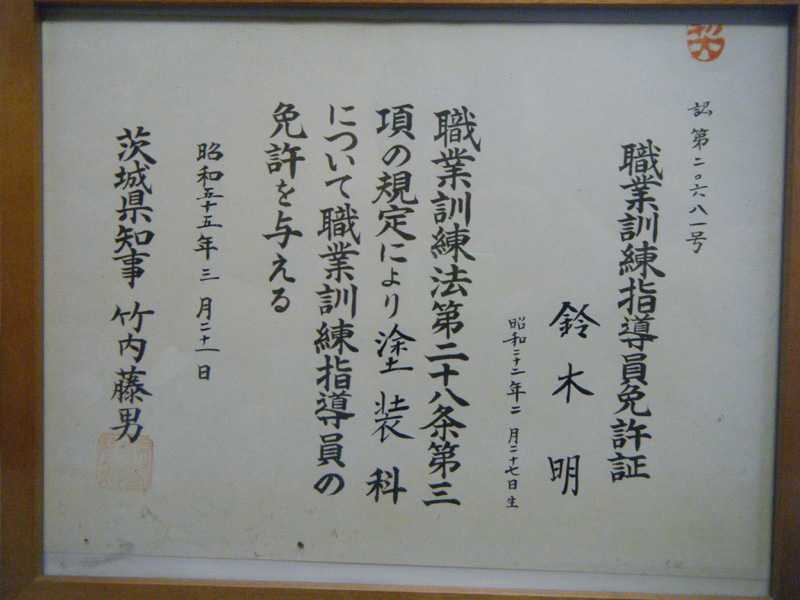 第二〇六八一号
職業訓練指導員免許証
鈴木明
昭和二十二年二月二十七日生
職業訓練法第二十八条第三
項の規定により塗装科
について職業訓練指導員の
免許を与える
昭和五十五年三月二十一日
茨城県知事 竹内藤男